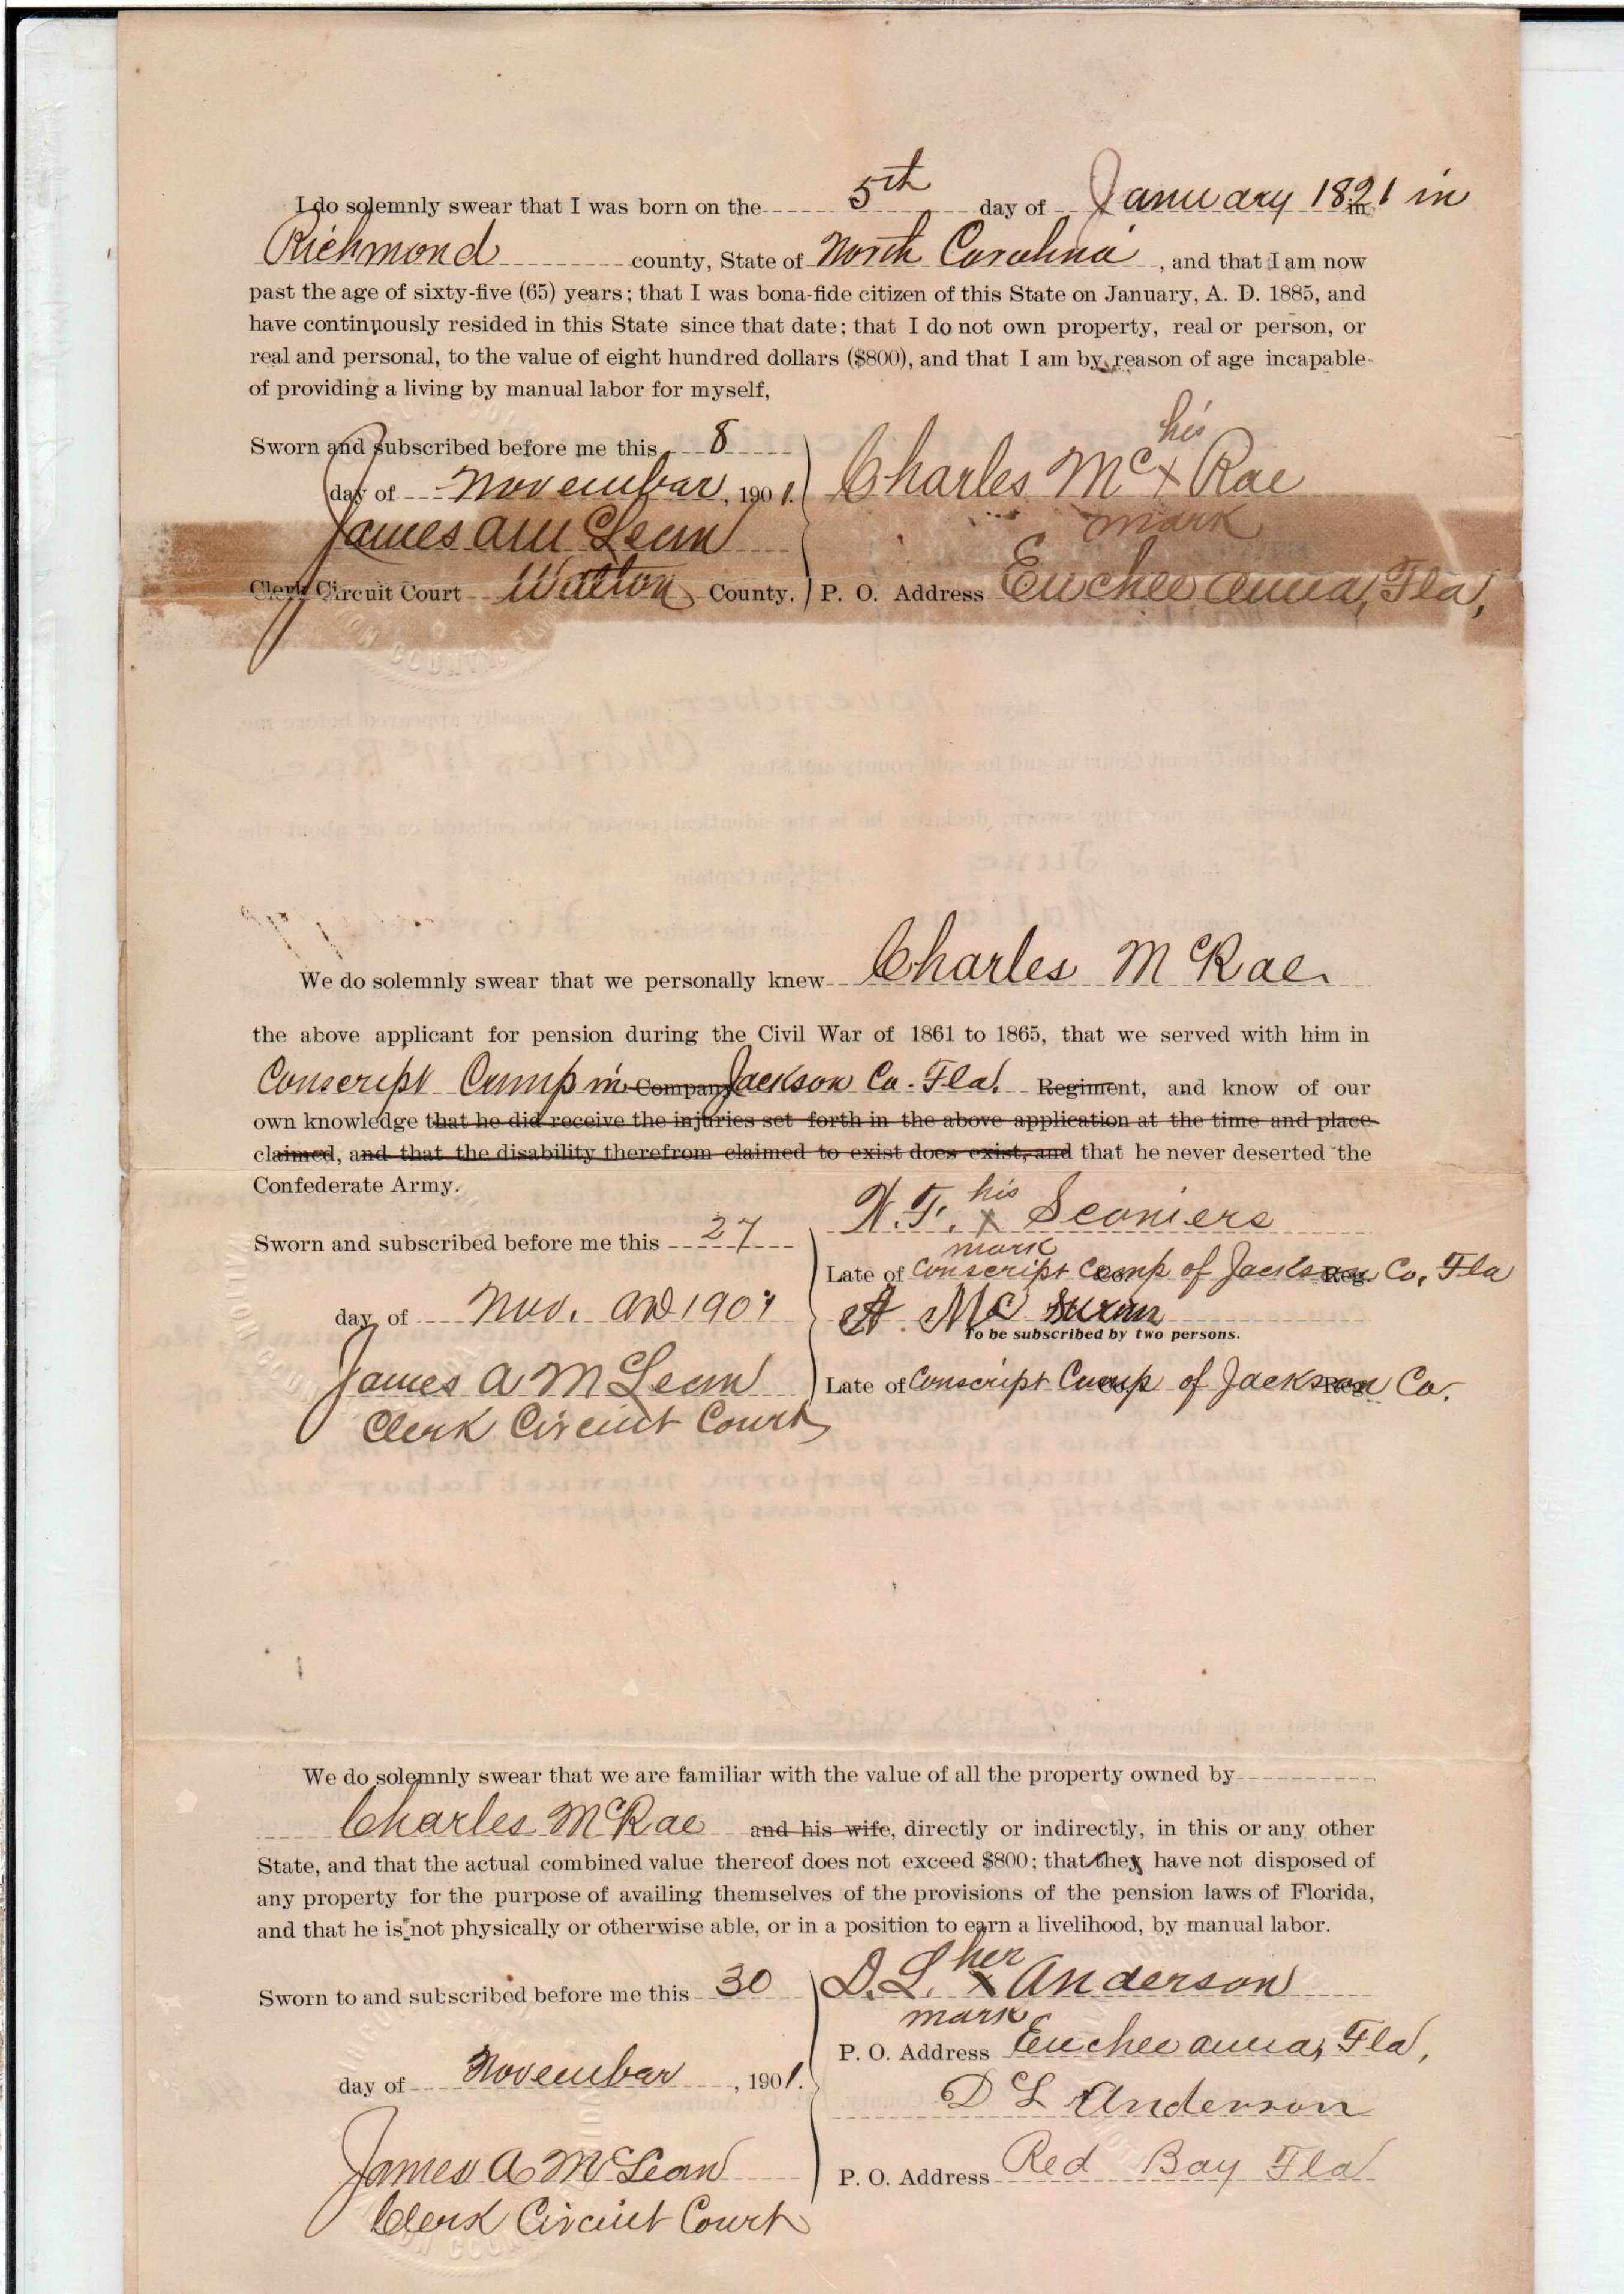 I do solemnly swear that I was born on the 5th day of January 1821 in
Richmond county, State of North Carolina, and that I am now
past the age of sixty-five (65) years; that I was bona-fide citizen of this State on January, A. D. 1885, and
have continuously resided in this State since that date; that I do not own property, real or person, or
real and personal, to the value of eight hundred dollars ($800), and that I am by reason of age incapable
of providing a living by manual labor for myself,
his
Sworn and subscribed before me this 8
day of November, 1901. Charles Mc x Rae
mark
James A McLean
Clerk Circuit Court Walton County. P. O. Address Euchee anna, Fla,
We do solemnly swear that we personally knew Charles McRae
the above applicant for pension during the Civil War of 1861 to 1865, that we served with him in
Conscript Camp in Company Jackson Co. Fla. Regiment, and know of our
own knowledge that he did receive the injuries set forth in the above application at the time and place
claimed, and that the disability therefrom claimed to exist does exist, and that he never deserted the
Confederate Army.
his
x Sconiers
mark
Sworn and subscribed before me this 27
Late of Conscript Camp of Jackson Co, Fla
day of Nov. AD 1901
A. Mc
To be subscribed by two persons.
James A McLean Late of Conscript Camp of Jackson Co.
Clerk Circuit Court
We do solemnly swear that we are familiar with the value of all the property owned by
Charles McRae and his wife, directly or indirectly, in this or any other
State, and that the actual combined value thereof does not exceed $800; that they have not disposed of
any property for the purpose of availing themselves of the provisions of the pension laws of Florida,
and that he is not physically or otherwise able, or in a position to earn a livelihood, by manual labor.
her
Sworn to and subscribed before me this 30 D. L. x Anderson
mark
P. O. Address Euchee anna, Fla,
day of November, 1901.
D L Anderson
James A McLean P. O. Address Red Bay Fla
Clerk Circuit Court